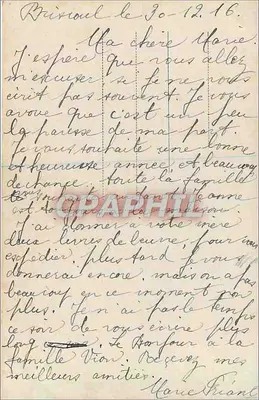 le 30-12.16.
Ma chère Marie.
J'espère que vous allez
m'excuser si je ne vous
écrit pas souvent. Je vous
avoue que c'est un peu
la paresse de ma part.
Je vous souhaite une bonne
et heureuse année et beaucoup
de chance, toute la famille
est
CPAPHIL
j'ai donner à votre mère
deux livres de beurre, pour vous
expédier, plus tard je vous
donnerai encore, mais on a pas
beaucoup en ce moment
plus. Je n'ai pas le temps
ce soir de vous écrire plus
long. Le bonjour à la
famille Vion. Recevez mes
meilleurs amitiés.
Marie